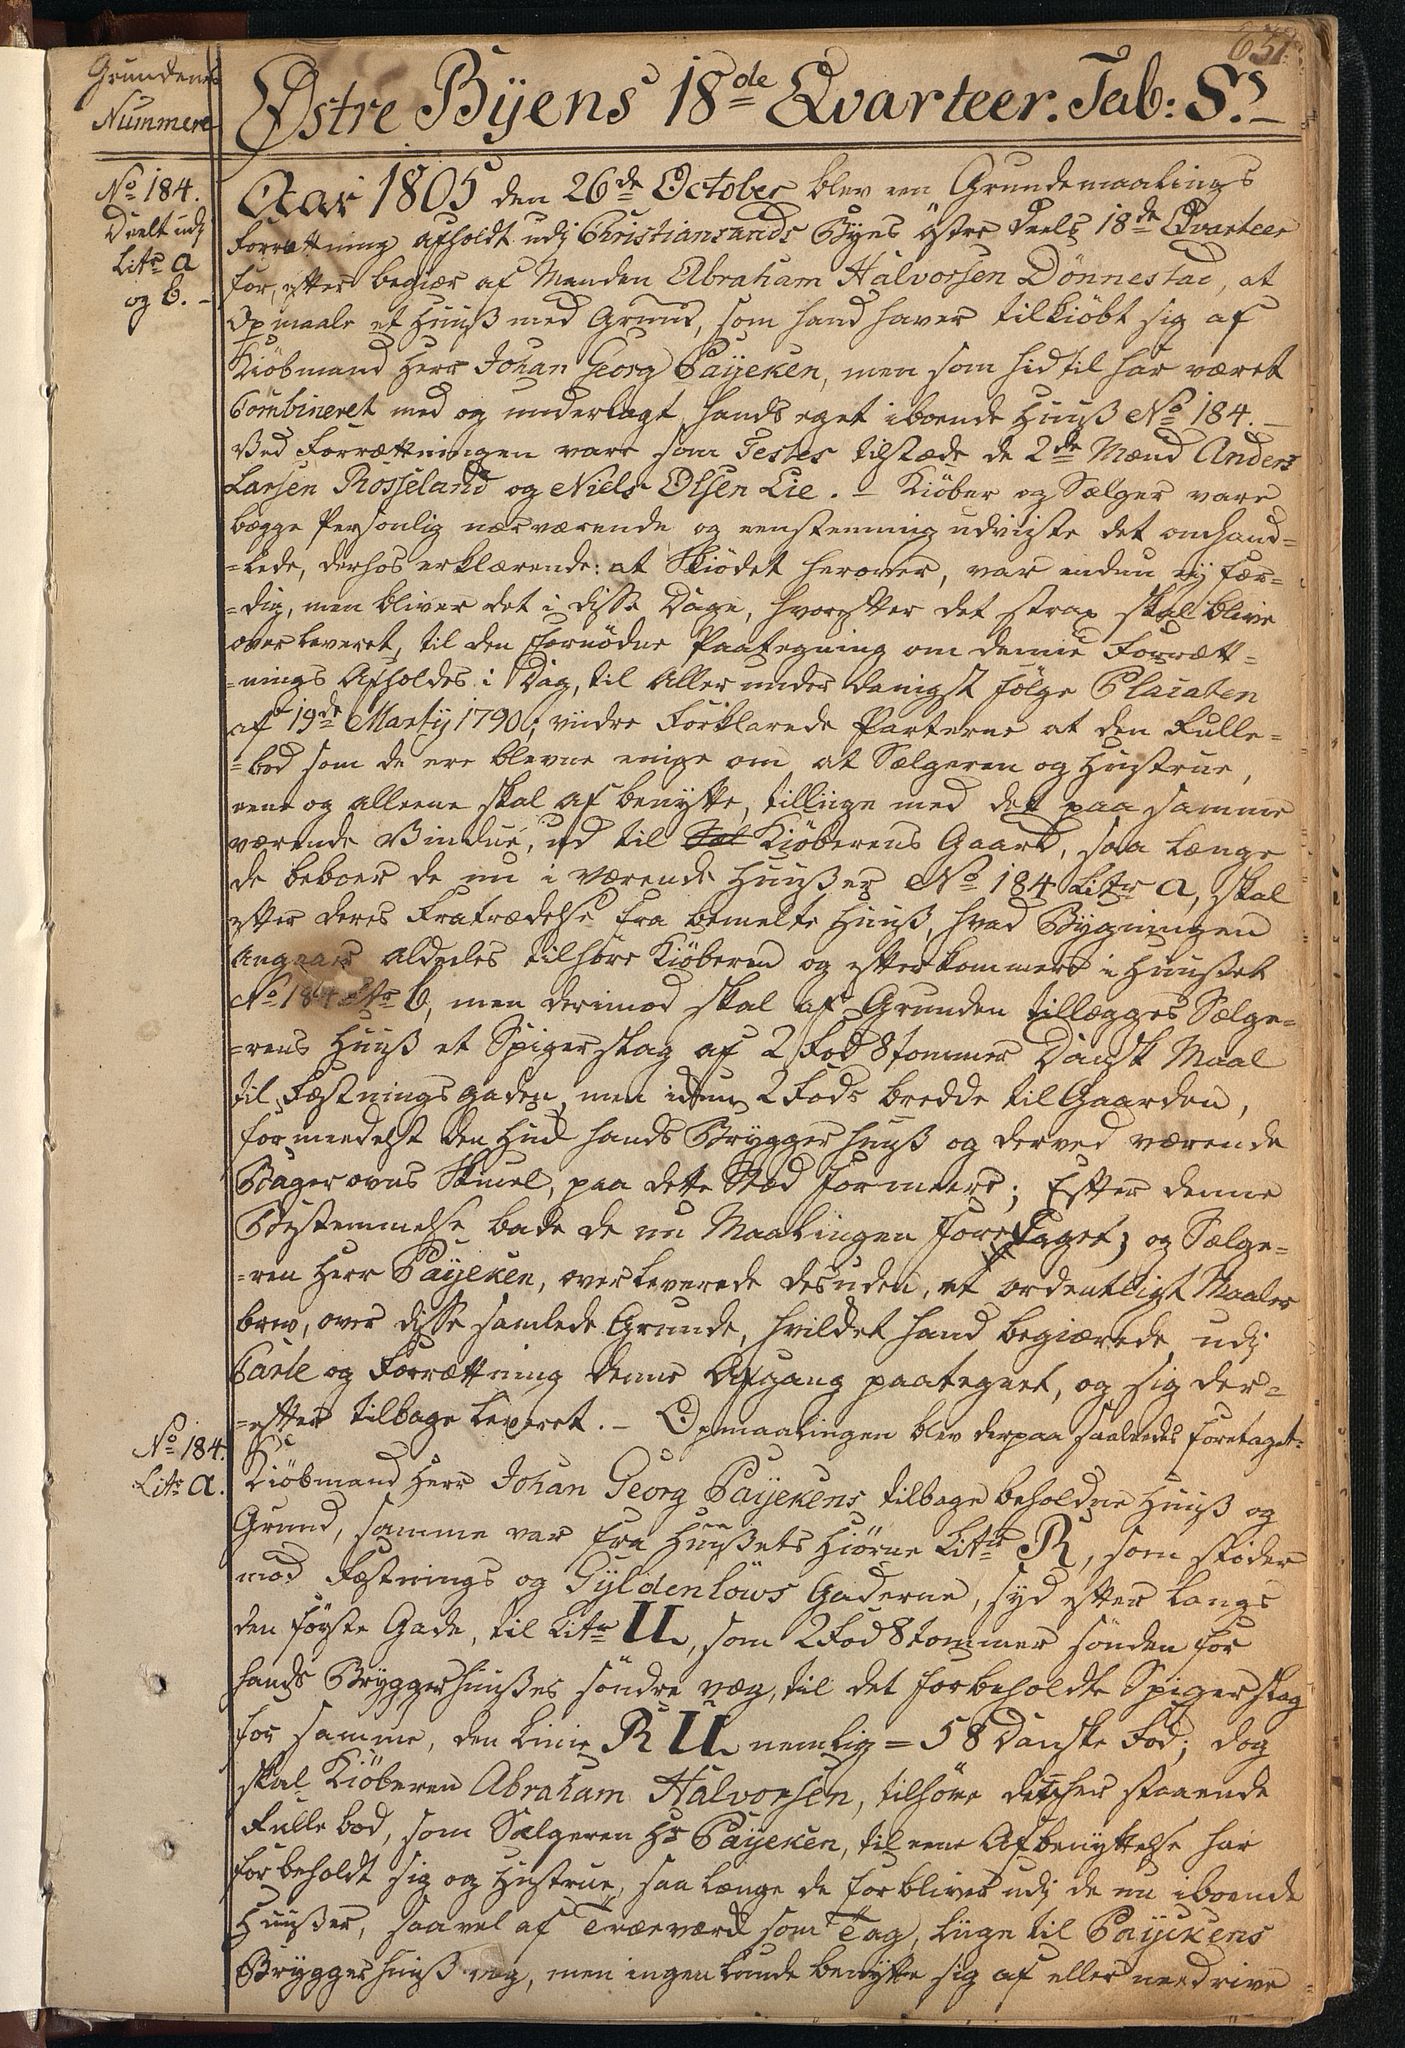 651
Grundenes
Nummere
Østre Bÿens 18de Qvarteer. Tab: S.
No 184.
Deelt udj
Litr a
og b.
Aar 1805 den 26de October blev een Grundemaalings
Forrætning afholdt udj Christiansands Byes östre Deels 18de Qvarteer
for, efter begiær af Manden Abraham Halvorsen Dönnestad, at
Opmaale et Huuß med Grund, som hand haver tilkiöbt sig af
Kiöbmand Herr Johan Georg Paÿeken, men som hidtil har været
Combineret med og underlagt hands eget iboende Huuß No 184.
Ved Forrætningen vare som Testes tilstæde de 2de Mænd Anders
Larsen Rosseland og Niels Olsen Lie. – Kiöber og Sælger vare
begge Personlig nærværende og eenstemmig udviiste det omhand=
=lede, derhos erklærende: at Skiödet herover, var endnu ej fær=
=dig, men bliver det i disse Dage, hvorefter det strax skal blive
overleveret, til den fornödne Paategning om denne Forræt=
=nings Afholdes i Dag, til Allerunderdanigst fölge Placaten
af 19de Martÿ 1790; viidre Forklarede Parterne at den Rulle=
=bod som de ere blevne enige om at Sælgeren og Hustrue,
eene og alleene skal af benytte, tillige med det paa samme
værende Vindue, ud til Kiöberens Gaard, saa længe
de beboer de nu i værende Huußer No 184 Litr a, skal
efter deres Fratrædelse fra bemelte Huuß, hvad Bygningen
Angaaer aldeeles tilhöre Kiöberen og efterkommere i Huuset
No 184 Litr b, men derimod skal af Grunden tillegges Sælge=
=rens Huuß et Spigerslag af 2 Fod 8 tommer Dansk Maal
til Festningsgaden, men ikkun 2 Fods bredde til Gaarden,
formedelst den Hud hands Bryggerhuuß og derved værende
Bagerovns Skuel, paa dette Sted formeere; Efter denne
Bestemmelse bade de nu Maalingen foretaget; og Sælge=
=ren Herr Paÿeken, overleverede desuden, et ordentligt Maale
brev, over disse samlede Grunde, hvildet hand begiærede, udj
Carte og Forrætning denne Afgang paategnet, og sig der=
=efter tilbage leveret. – Opmaalingen blev derpaa saaledes foretaget:
No 184.
Litr a.
Kiöbmand Herr Johan Georg Paÿekens tilbage beholdne Huuß og
Grund, samme var fra Huußets Hiörne Litr R, som stöder
mod Festnings og Gÿldenlöws Gaderne, syd efter langs
den föyste Gade, til Litr U, som 2 Fod 8 tommer sönden for
hands Bryggerhuußes söndre væg, til det forbeholdte Spigerslag
for samme, den Linie R U nemlig = 58 Danske Fod; dog
skal Kiöberen Abraham Halvorsen, tilhöre det her staaende
Rullebod, som Sælgeren Hr Paÿeken, til eene Afbenyttelse har
forbeholdt sig og Hustrue, saa længe de forbliver udj de nu iboende
Huußer, saavel af Træeværk som Tag, liige til Paÿekens
Bryggerhuuß væg, men ingenlunde benytte sig af eller needrive